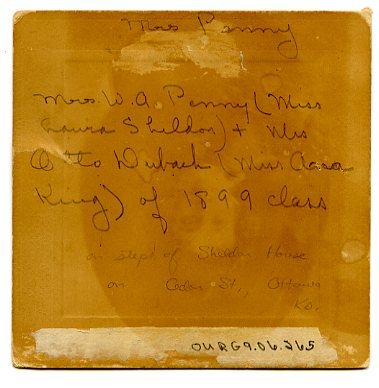 Mrs Penny
Mrs. W. A. Penny (Miss
Laura Sheldon) + Mrs
Otto Dubach (Miss
King) of 1899 class
on steps of Sheldon House
on Cedar St., Ottawa
Ks.
OURG9.06.265